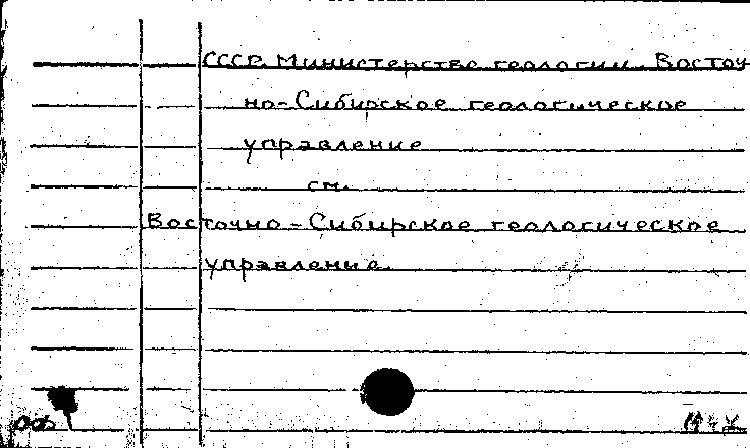 СССР. Министерство геологии. Восточ
но-Сибирское геологическое
управление
см.
Восточно-Сибирское геологическое
управление.